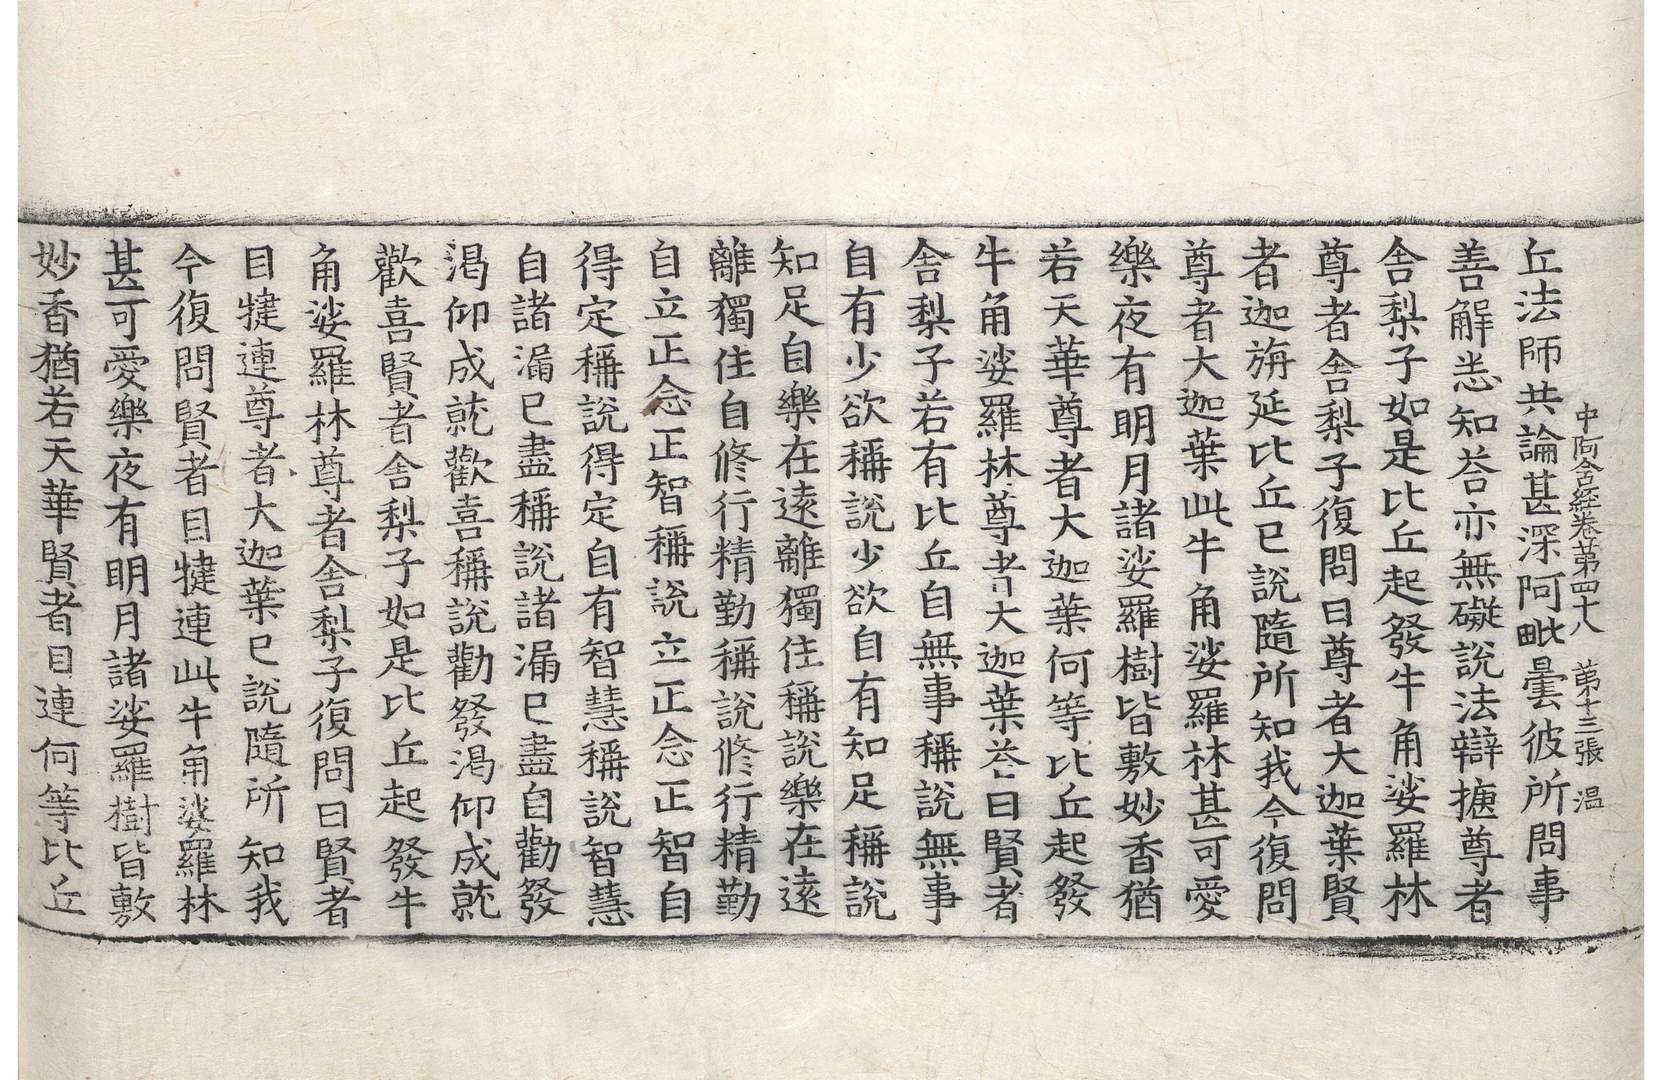 中阿含經卷第四十八　第十三張　温
丘法師共論甚深阿毗曇彼所問事
善解悉知荅亦無礙說法辯捷尊者
舍梨子如是比丘起發牛角娑羅林
尊者舍梨子復問曰尊者大迦葉賢
者迦旃延比丘已說隨所知我今復問
尊者大迦葉此牛角娑羅林甚可愛
樂夜有明月諸娑羅樹皆敷妙香猶
若天華尊者大迦葉何等比丘起發
牛角娑羅林尊者大迦葉荅曰賢者
舍梨子若有比丘自無事稱說無事
自有少欲稱說少欲自有知足稱說
知足自樂在遠離獨住稱說樂在遠
離獨住自修行精勤稱說修行精勤
自立正念正智稱說立正念正智自
得定稱說得定自有智慧稱說智慧
自諸漏已盡稱說諸漏已盡自勸發
渴仰成就歡喜稱說勸發渴仰成就
歡喜賢者舍梨子如是比丘起發牛
角娑羅林尊者舍梨子復問曰賢者
目揵連尊者大迦葉已說隨所知我
今復問賢者目揵連此牛角娑羅林
甚可愛樂夜有明月諸娑羅樹皆敷
妙香猶若天華賢者目連何等比丘